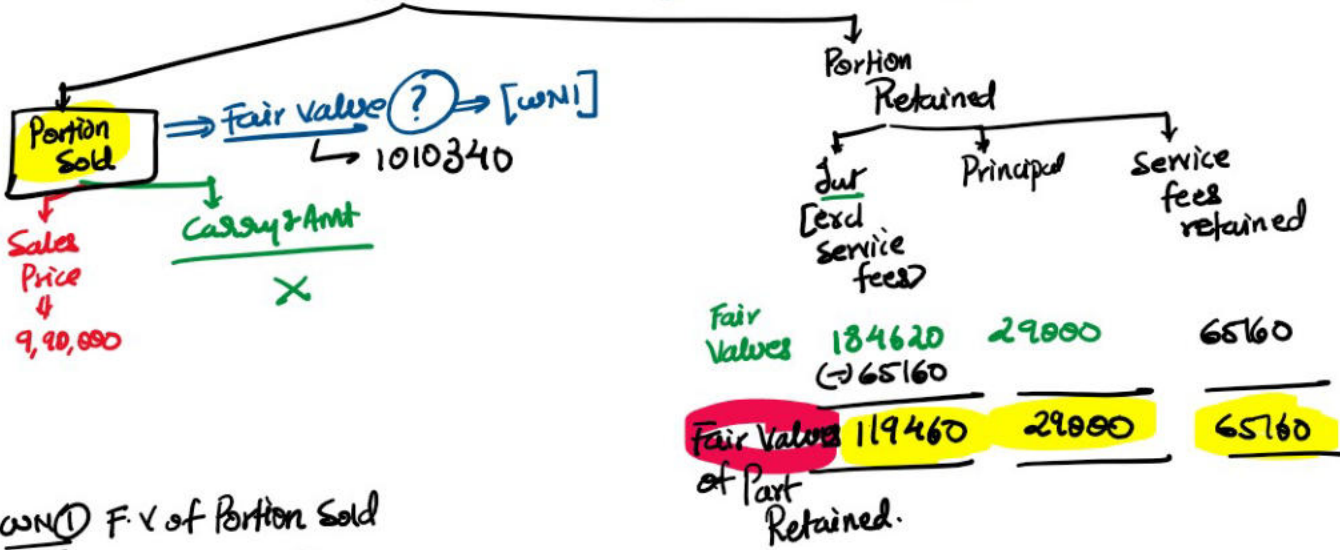 Portion
Sold
Fair value ? ⇒ [WN1]
1010340
Sales
Price
9,90,000
Carryg Amt
X
Portion
Retained
Int
[excl
service
fees]
Principal
Service
fees
retained
Fair
Values
184620
29000
65160
(-) 65160
Fair Values
of Part
Retained.
119460
29000
65160
WN① F.V of Portion Sold